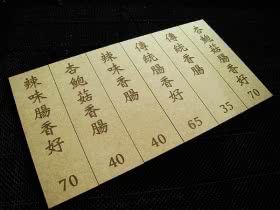 杏鮑菇腸香好
70
傳統香腸
35
傳統腸香好
65
辣味香腸
40
杏鮑菇香腸
40
辣味腸香好
70